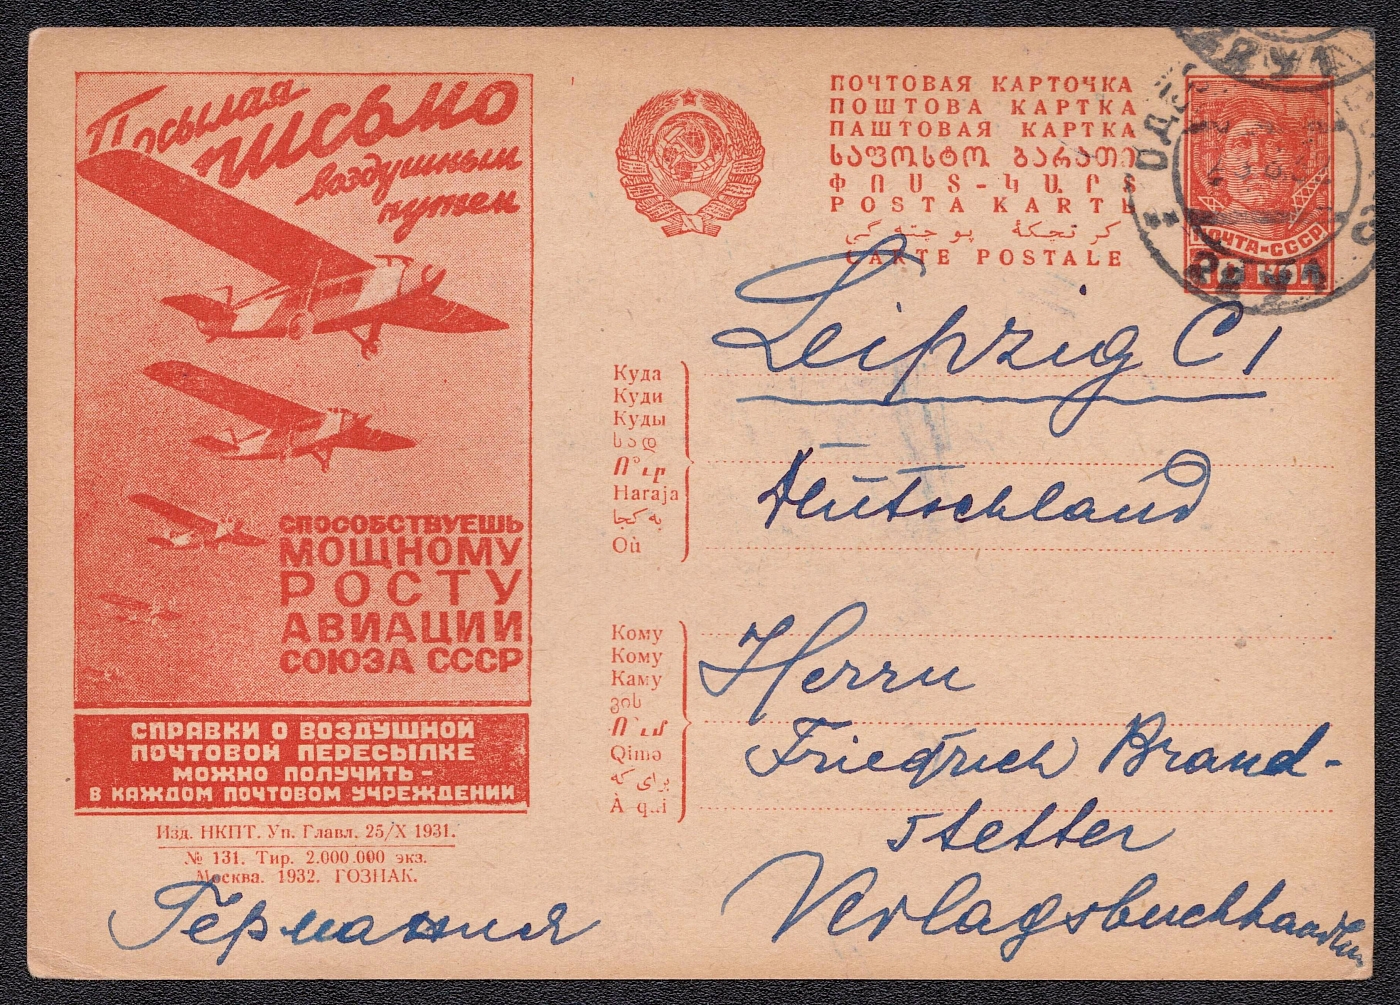 Посылая
письмо
воздушным
путем
СПОСОБСТВУЕШЬ
МОЩНОМУ
РОСТУ
АВИАЦИИ
СОЮЗА СССР
СПРАВКИ О ВОЗДУШНОЙ
ПОЧТОВОЙ ПЕРЕСЫЛКЕ
МОЖНО ПОЛУЧИТЬ -
В КАЖДОМ ПОЧТОВОМ УЧРЕЖДЕНИИ
Изд. НКПТ. Уп. Главл. 25/X 1931.
№ 131. Тир. 2.000.000 экз.
Москва. 1932. ГОЗНАК.
Германия
ПОЧТОВАЯ КАРТОЧКА
ПОШТОВА КАРТКА
ПАШТОВАЯ КАРТКА
ᲡᲐᲤᲝᲡᲢᲝ ᲑᲐᲠᲐᲗᲘ
ՓՈՍՏ-ԿԱՐՏ
POSTA KARTЬ
كرتچكۀ پوچته‌گي
CARTE POSTALE
ПОЧТА-СССР
Leipzig C1
Deutschland
Куда
Куди
Куды
სად
Ո՞ւր
Haraja
به كجا
Où
Кому
Кому
Каму
ვის
Ո՞ւմ
Qimə
برای كه
À qui
Herrn
Friedrich Brand-
stetter
Verlagsbuchhandlung